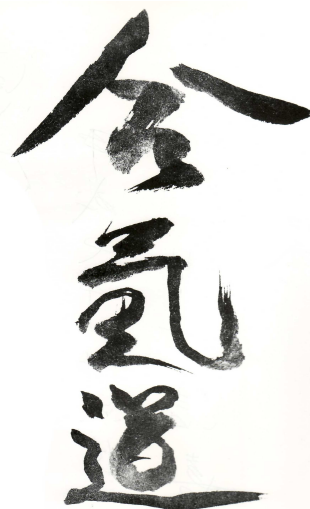 合氣道